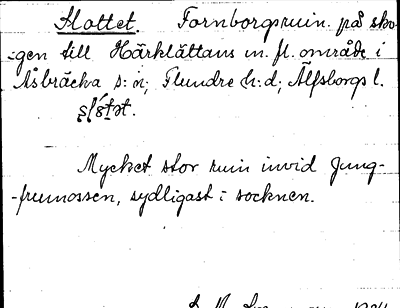 Slottet. Fornborgsruin. på sko-
-gen till Härklättans m. fl. område i
Åsbräcka s:n; Flundre h:d; Älfsborgs l.
Mycket stor ruin invid Jung-
-frumossen, sydligast i socknen.